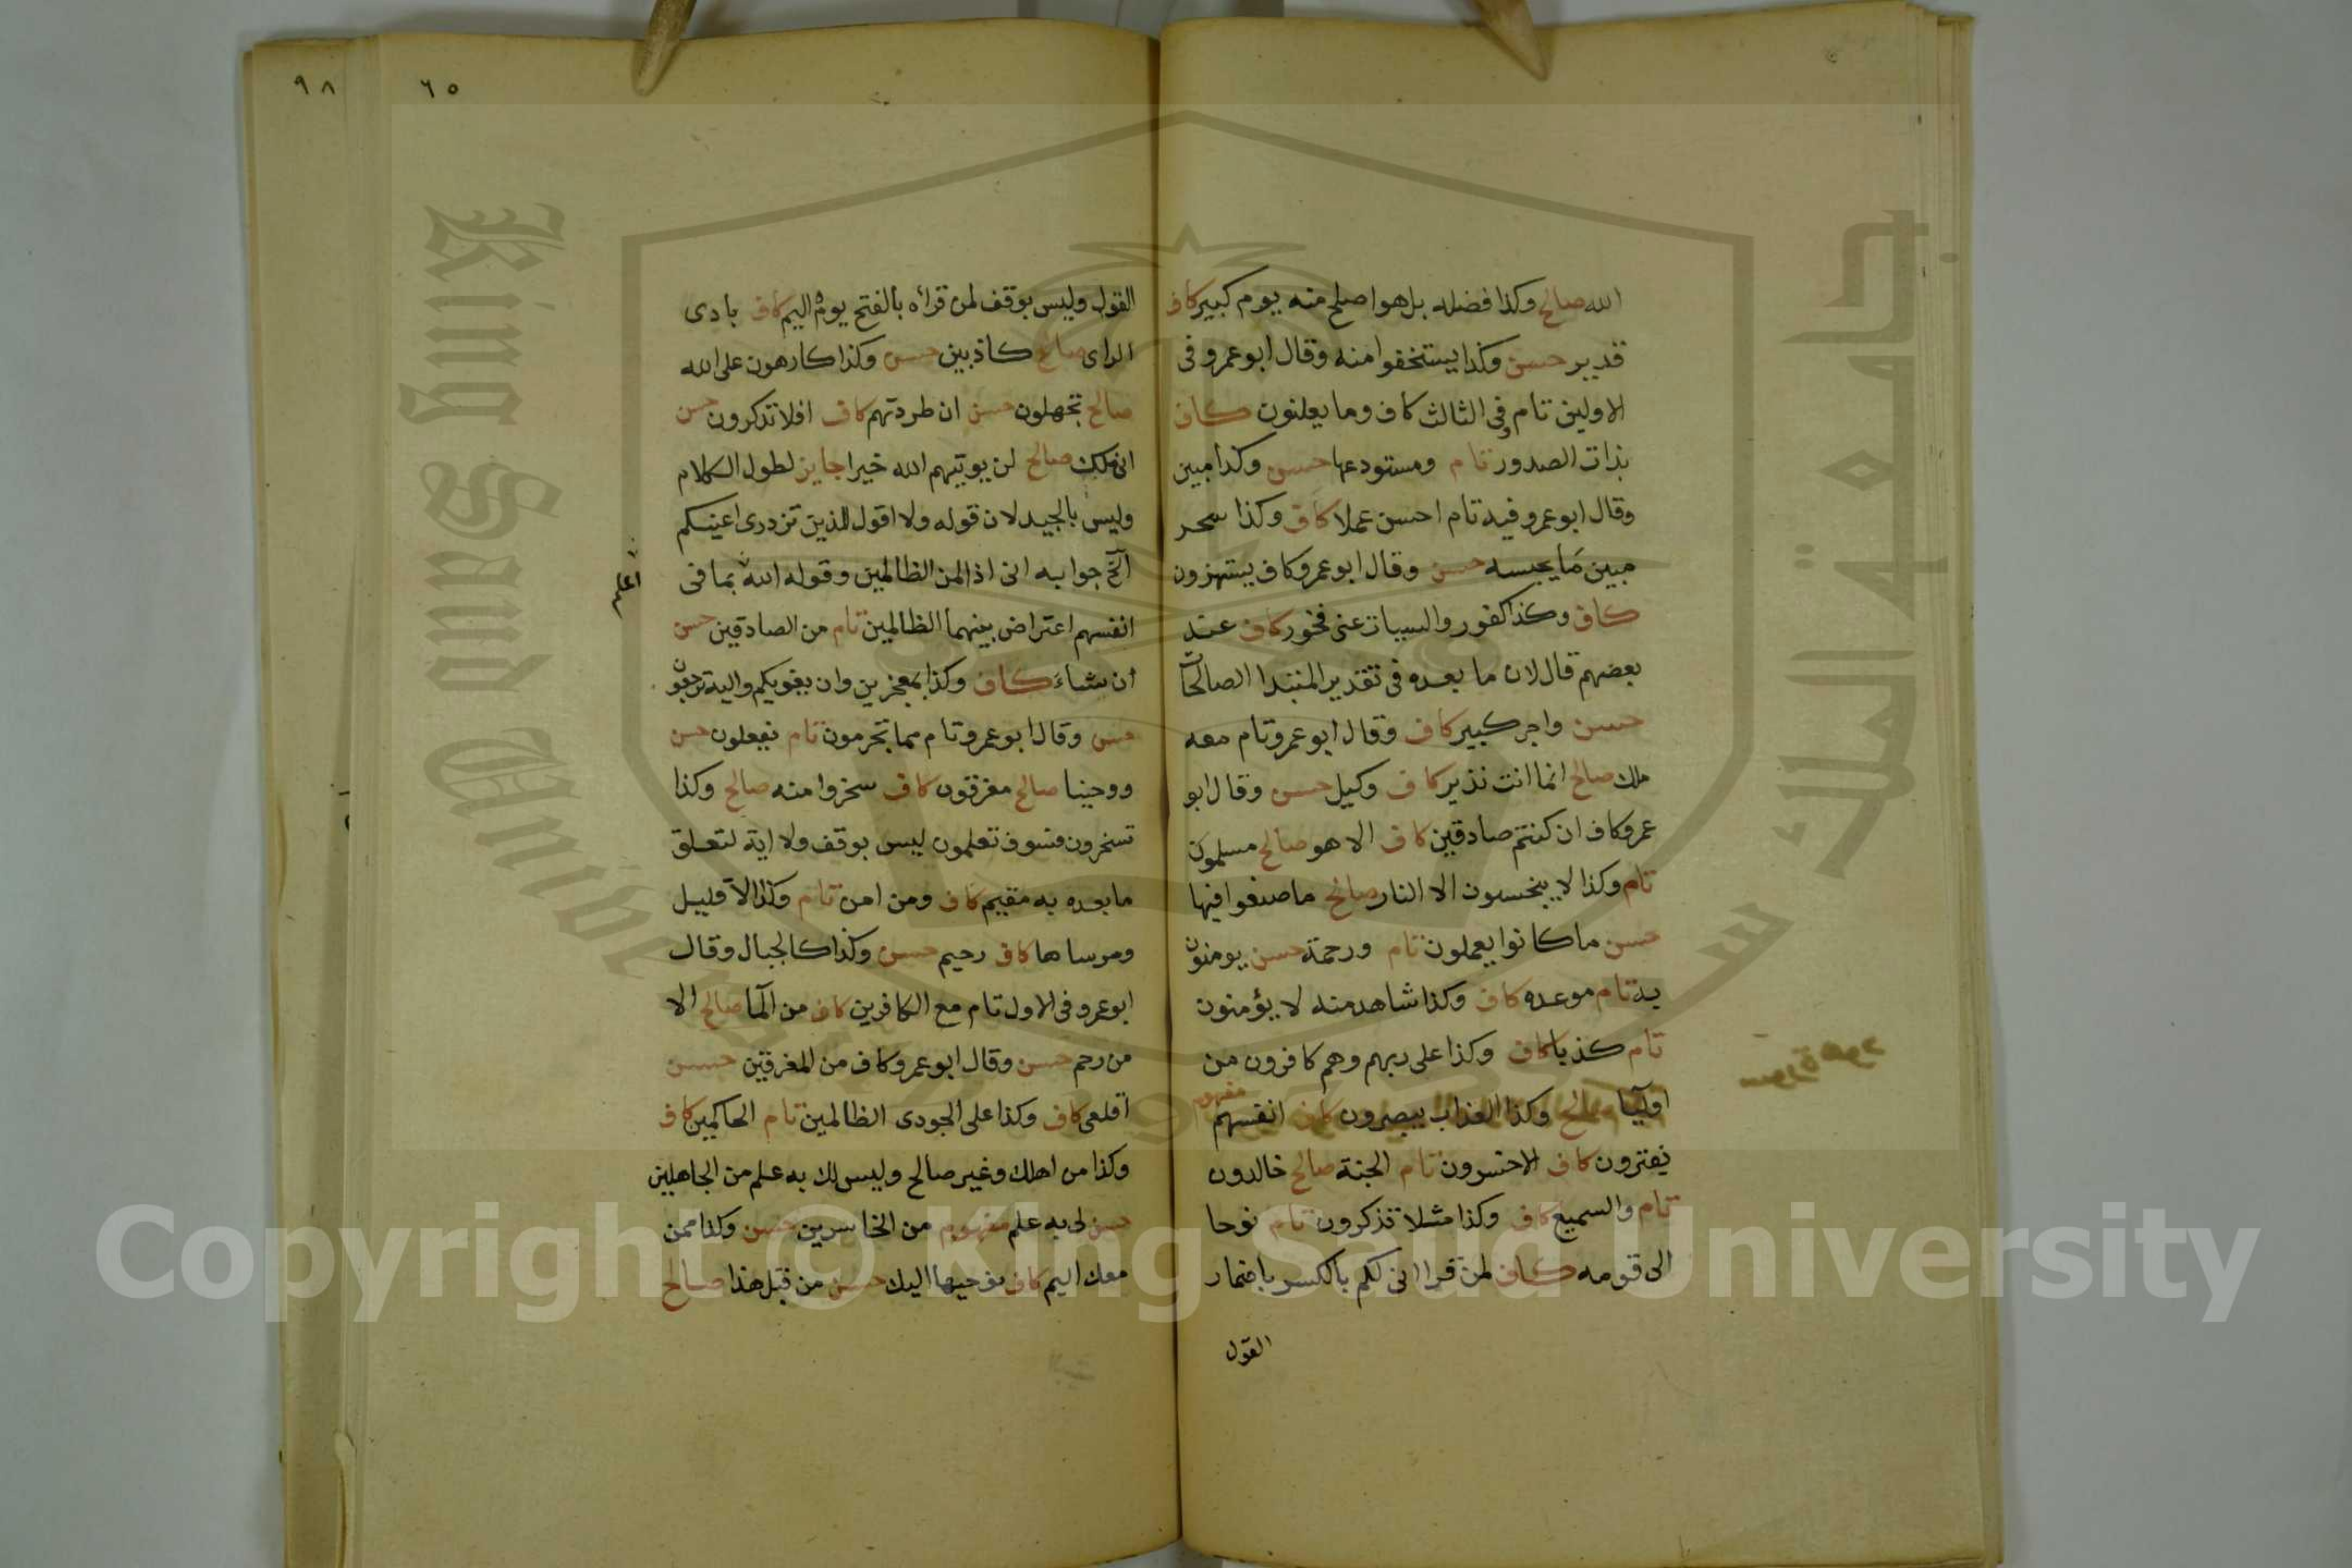 الله صالح وكذا فضله بل هو اصلح منه يوم كبير كاف
قدير حسن وكذا يستخفوا منه وقال ابو عمرو فى
الاولين تام وفى الثالث كاف وما يعلنون كاف
بذات الصدور تام ومستودعها حسن وكذا مبين
وقال ابو عمرو فيه تام احسن عملا كاف وكذا سحر
مبين ما يحبسه حسن وقال ابو عمرو كاف يستهزون
كاف وكذا كفور والسيات عنى فخور كاف عند
بعضهم قال لان ما بعده فى تقدير المبتدا الصالحات
حسن واجر كبير كاف وقال ابو عمرو تام معه
ملك صالح انما انت نذير كاف وكيل حسن وقال ابو
عمرو كاف ان كنتم صادقين كاف الا هو صالح مسلمون
تام وكذا لا يبخسون الا النار صالح ما صنعوا فيها
حسن ما كانوا يعملون تام ورحمة حسن يومنون
به تام موعده كاف وكذا شاهد منه لا يؤمنون
تام كذبا كاف وكذا على ربهم وهم كافرون من
اوليا صالح وكذا العذاب يبصرون كاف انفسهم مفهوم
يفترون كاف الاخسرون تام الجنة صالح خالدون
تام والسميع كاف وكذا مثلا تذكرون تام نوحا
الى قومه كاف لمن قرا انى لكم بالكسر باضمار
القول
سورة هود
٩٨
٦٥
القول وليس بوقف لمن قرأه بالفتح يوم اليم كاف بادى
الراى صالح كاذبين حسن وكذا كارهون على الله
صالح تجهلون حسن ان طردتهم كاف افلا تذكرون حسن
انى ملك صالح لن يوتيهم الله خيرا جايز لطول الكلام
وليس بالجيد لان قوله ولا اقول للذين تزدرى اعينكم
الخ جوابه انى اذا لمن الظالمين وقوله الله بما فى
اعلم
انفسهم اعتراض بينهما الظالمين تام من الصادقين حسن
ان شاء كاف وكذا بمعجزين وان يغويكم واليه ترجعون
حسن وقال ابو عمرو تام مما تجرمون تام يفعلون حسن
ووحينا صالح مغرقون كاف سخروا منه صالح وكذا
تسخرون فسوف تعلمون ليس بوقف ولا اية لتعلق
ما بعده به مقيم كاف ومن امن تام وكذا الا قليل
ومرساها كاف رحيم حسن وكذا كالجبال وقال
ابو عمرو فى الاول تام مع الكافرين كاف من الما صالح الا
من رحم حسن وقال ابو عمرو كاف من المغرقين حسن
اقلعى كاف وكذا على الجودى الظالمين تام الحاكمين كاف
وكذا من اهلك وغير صالح وليس لك به علم من الجاهلين
حسن لى به علم مفهوم من الخاسرين حسن وكذا ممن
معك اليم كاف نوحيها اليك حسن من قبل هذا صالح
King Saud University
جامعة الملك سعود
1957
Copyright © King Saud University